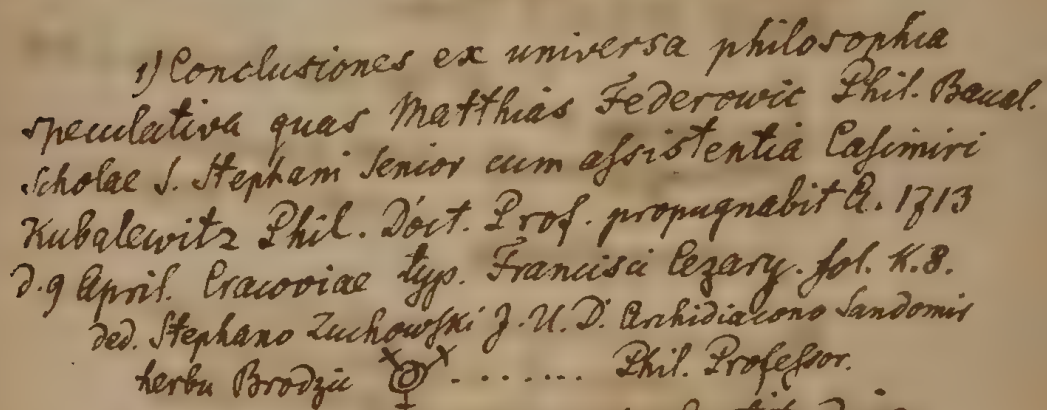 1) Conclusiones ex universa philosophia
speculativa quas Matthias Federowic Phil. Bacal.
scholae S. Stephani Senior cum assistentia Casimiri
Kubalewitz Phil. Doct. Prof. propugnabit A. 1713
d. 9 April. Cracoviae typ. Francisci Cezary. fol. K. 8.
ded. Stephano Zuchowski J. U. D. Archidiacono Sandomir
herbu Brodzic ........ Phil. Professor.